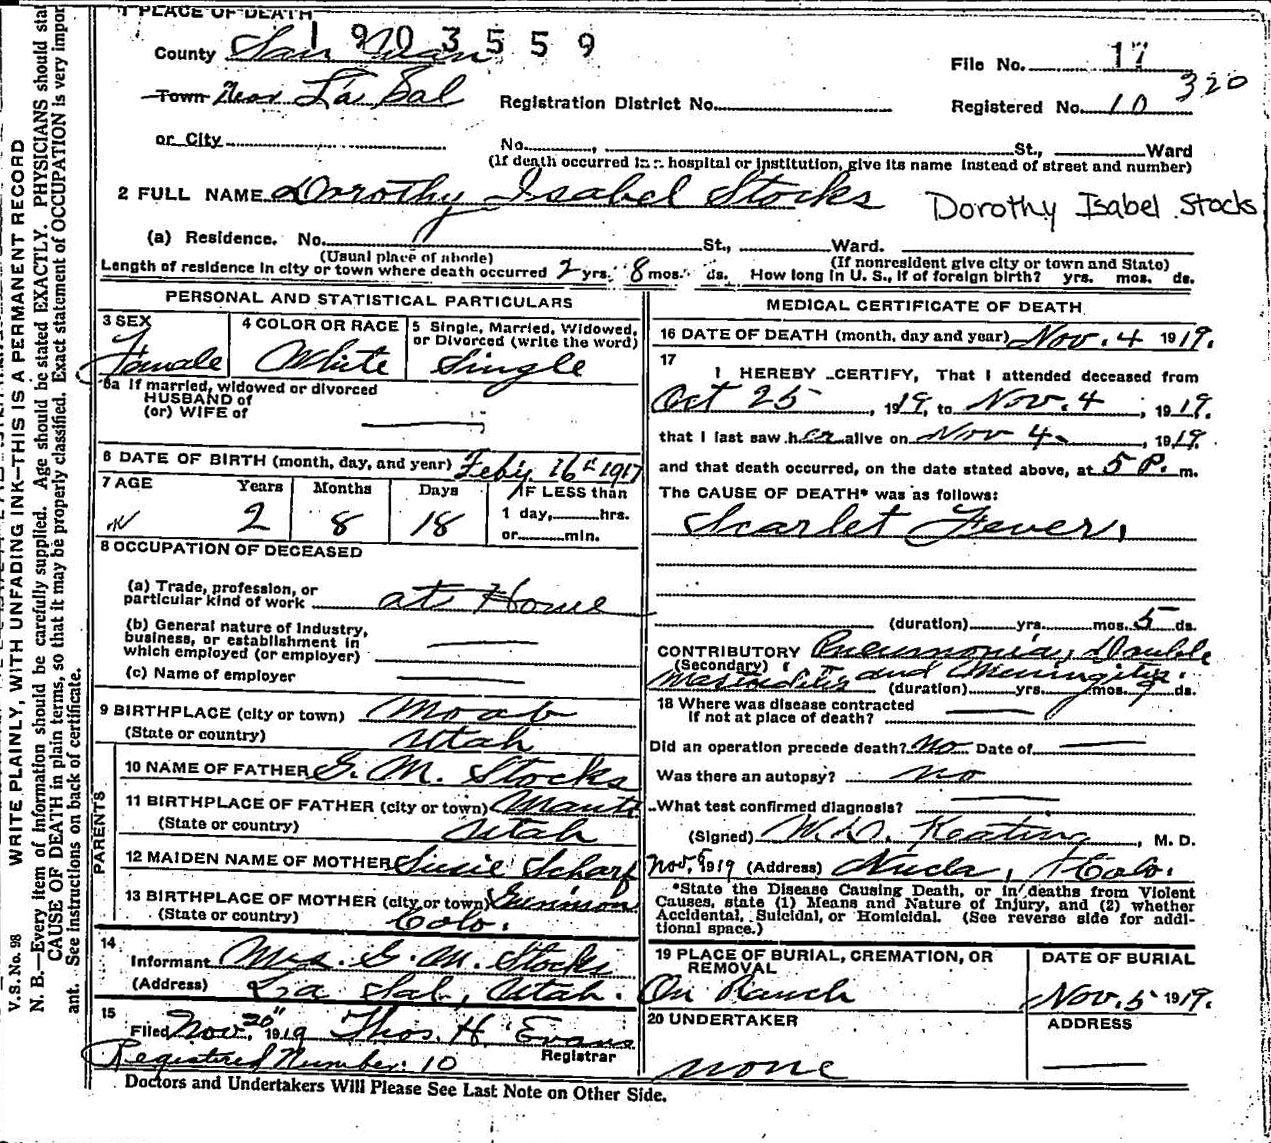 1 PLACE OF DEATH
1903559
County San Juan
File No. 17
320
Town Near La Sal Registration District No. Registered No. 10
or City No. , St., Ward
(If death occurred in a hospital or institution, give its name instead of street and number)
2 FULL NAME Dorothy Isabel Stocks Dorothy Isabel Stocks
(a) Residence. No. St., Ward.
(Usual place of abode) (If nonresident give city or town and State)
Length of residence in city or town where death occurred 2 yrs. 8 mos. ds. How long in U. S., if of foreign birth? yrs. mos. ds.
PERSONAL AND STATISTICAL PARTICULARS
3 SEX
Female
4 COLOR OR RACE
White
5 Single, Married, Widowed,
or Divorced (write the word)
Single
5a If married, widowed or divorced
HUSBAND of
(or) WIFE of
6 DATE OF BIRTH (month, day, and year) Feby. 16th 1917
7 AGE Years Months Days IF LESS than
2 8 18 1 day, hrs.
or min.
8 OCCUPATION OF DECEASED
(a) Trade, profession, or
particular kind of work at Home
(b) General nature of Industry,
business, or establishment in
which employed (or employer)
(c) Name of employer
9 BIRTHPLACE (city or town) Moab
(State or country) Utah
PARENTS
10 NAME OF FATHER G. M. Stocks
11 BIRTHPLACE OF FATHER (city or town) Manti
(State or country) Utah
12 MAIDEN NAME OF MOTHER Susie Scharf
13 BIRTHPLACE OF MOTHER (city or town) Gunnison
(State or country) Colo.
14
Informant Mrs. G. M. Stocks
(Address) La Sal, Utah.
15
Filed Nov. 20" 1919 Thos. H. Evans
Registrar
Registered Number: 10
MEDICAL CERTIFICATE OF DEATH
16 DATE OF DEATH (month, day and year) Nov. 4 1919.
17
I HEREBY CERTIFY, That I attended deceased from
Oct 25, 1919, to Nov. 4, 1919.
that I last saw her alive on Nov 4, 1919.
and that death occurred, on the date stated above, at 5 P. m.
The CAUSE OF DEATH* was as follows:
Scarlet Fever,
(duration) yrs. mos. 5 ds.
CONTRIBUTORY Pneumonia, Double
(Secondary) Mastoiditis and Meningitis.
(duration) yrs. mos. ds.
18 Where was disease contracted
if not at place of death?
Did an operation precede death? No Date of
Was there an autopsy? no
What test confirmed diagnosis?
(Signed) W. D. Keating, M. D.
Nov, 5 1919 (Address) Nucla, Colo.
*State the Disease Causing Death, or in deaths from Violent
Causes, state (1) Means and Nature of Injury, and (2) whether
Accidental, Suicidal, or Homicidal. (See reverse side for addi-
tional space.)
19 PLACE OF BURIAL, CREMATION, OR
REMOVAL
On Ranch
DATE OF BURIAL
Nov. 5 1919.
20 UNDERTAKER
none
ADDRESS
Doctors and Undertakers Will Please See Last Note on Other Side.
V. S. No. 98 WRITE PLAINLY, WITH UNFADING INK—THIS IS A PERMANENT RECORD
N. B.—Every item of information should be carefully supplied. Age should be stated EXACTLY. PHYSICIANS should stat
CAUSE OF DEATH in plain terms, so that it may be properly classified. Exact statement of OCCUPATION is very impor
ant. See instructions on back of certificate.